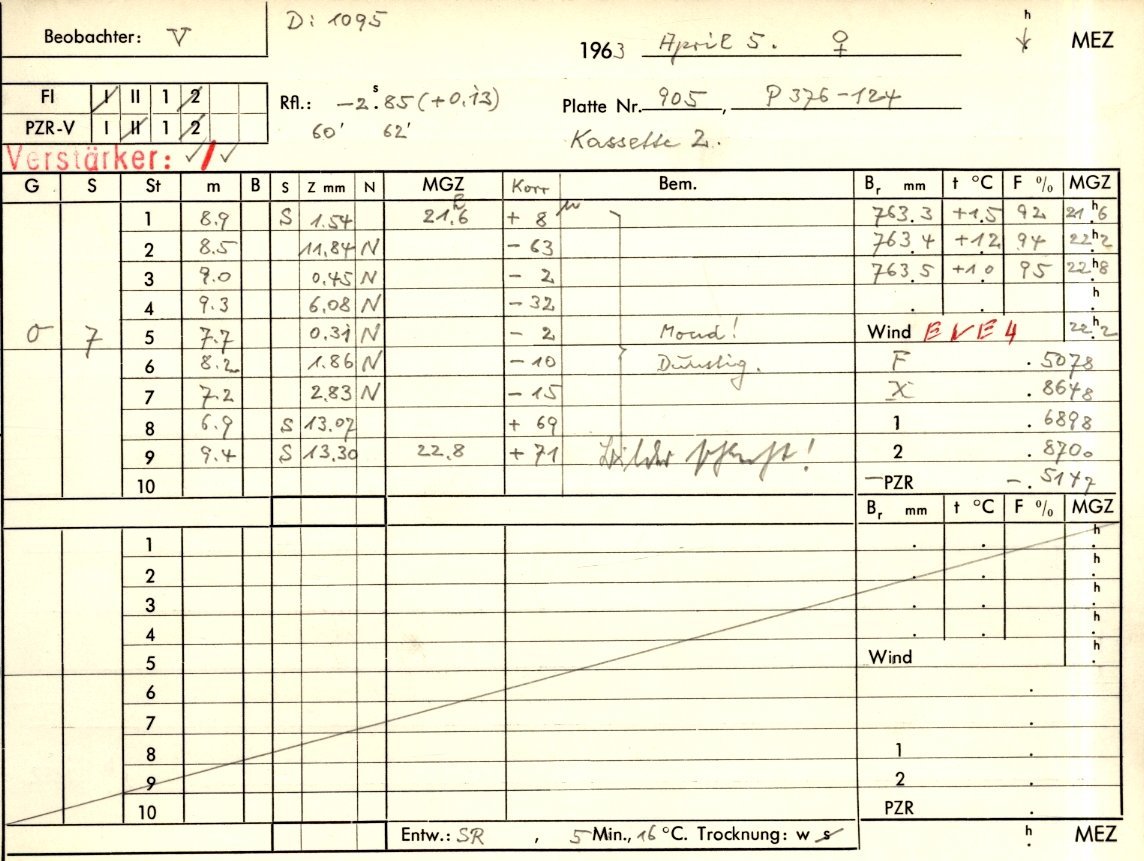 Beobachter: V
D: 1095
1963 April 5. ♀ h MEZ
FI I II 1 2
PZR-V I II 1 2
Rfl.: -2.ˢ85 (+0.13)
60' 62'
Platte Nr. 905, P 376-124
Kassette 2.
Verstärker: ✓/✓
G S St m B S Z mm N MGZ Korr Bem. Bᵣ mm t °C F % MGZ
1 8.9 S 1.54 21.ʰ6 + 8 µ 763.3 +1.5 92 21.ʰ6
2 8.5 11.84 N - 63 763.4 +1.2 94 22.ʰ2
3 9.0 0.45 N - 2 763.5 +1.0 95 22.ʰ8
4 9.3 6.08 N - 32 . . h
σ 7 5 7.7 0.31 N - 2 Mond! Wind E / E 4 22.ʰ2
6 8.2 1.86 N - 10 Dunstig. F .5078
7 7.2 2.83 N - 15 X .8648
8 6.9 S 13.07 + 69 1 .6898
9 9.4 S 13.30 22.8 + 71 Bilder schlecht! 2 .8700
10 -PZR -.5147
Bᵣ mm t °C F % MGZ
1 . . h
2 . . h
3 . . h
4 . . h
5 Wind h
6 .
7 .
8 1 .
9 2 .
10 PZR .
Entw.: SR , 5 Min., 16 °C. Trocknung: w s h MEZ